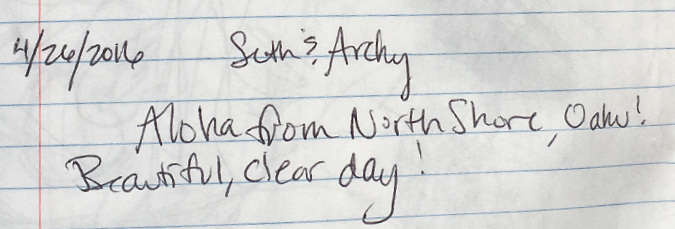 4/26/2016 Seth & Archy
Aloha from North Shore, Oahu!
Beautiful, clear day!